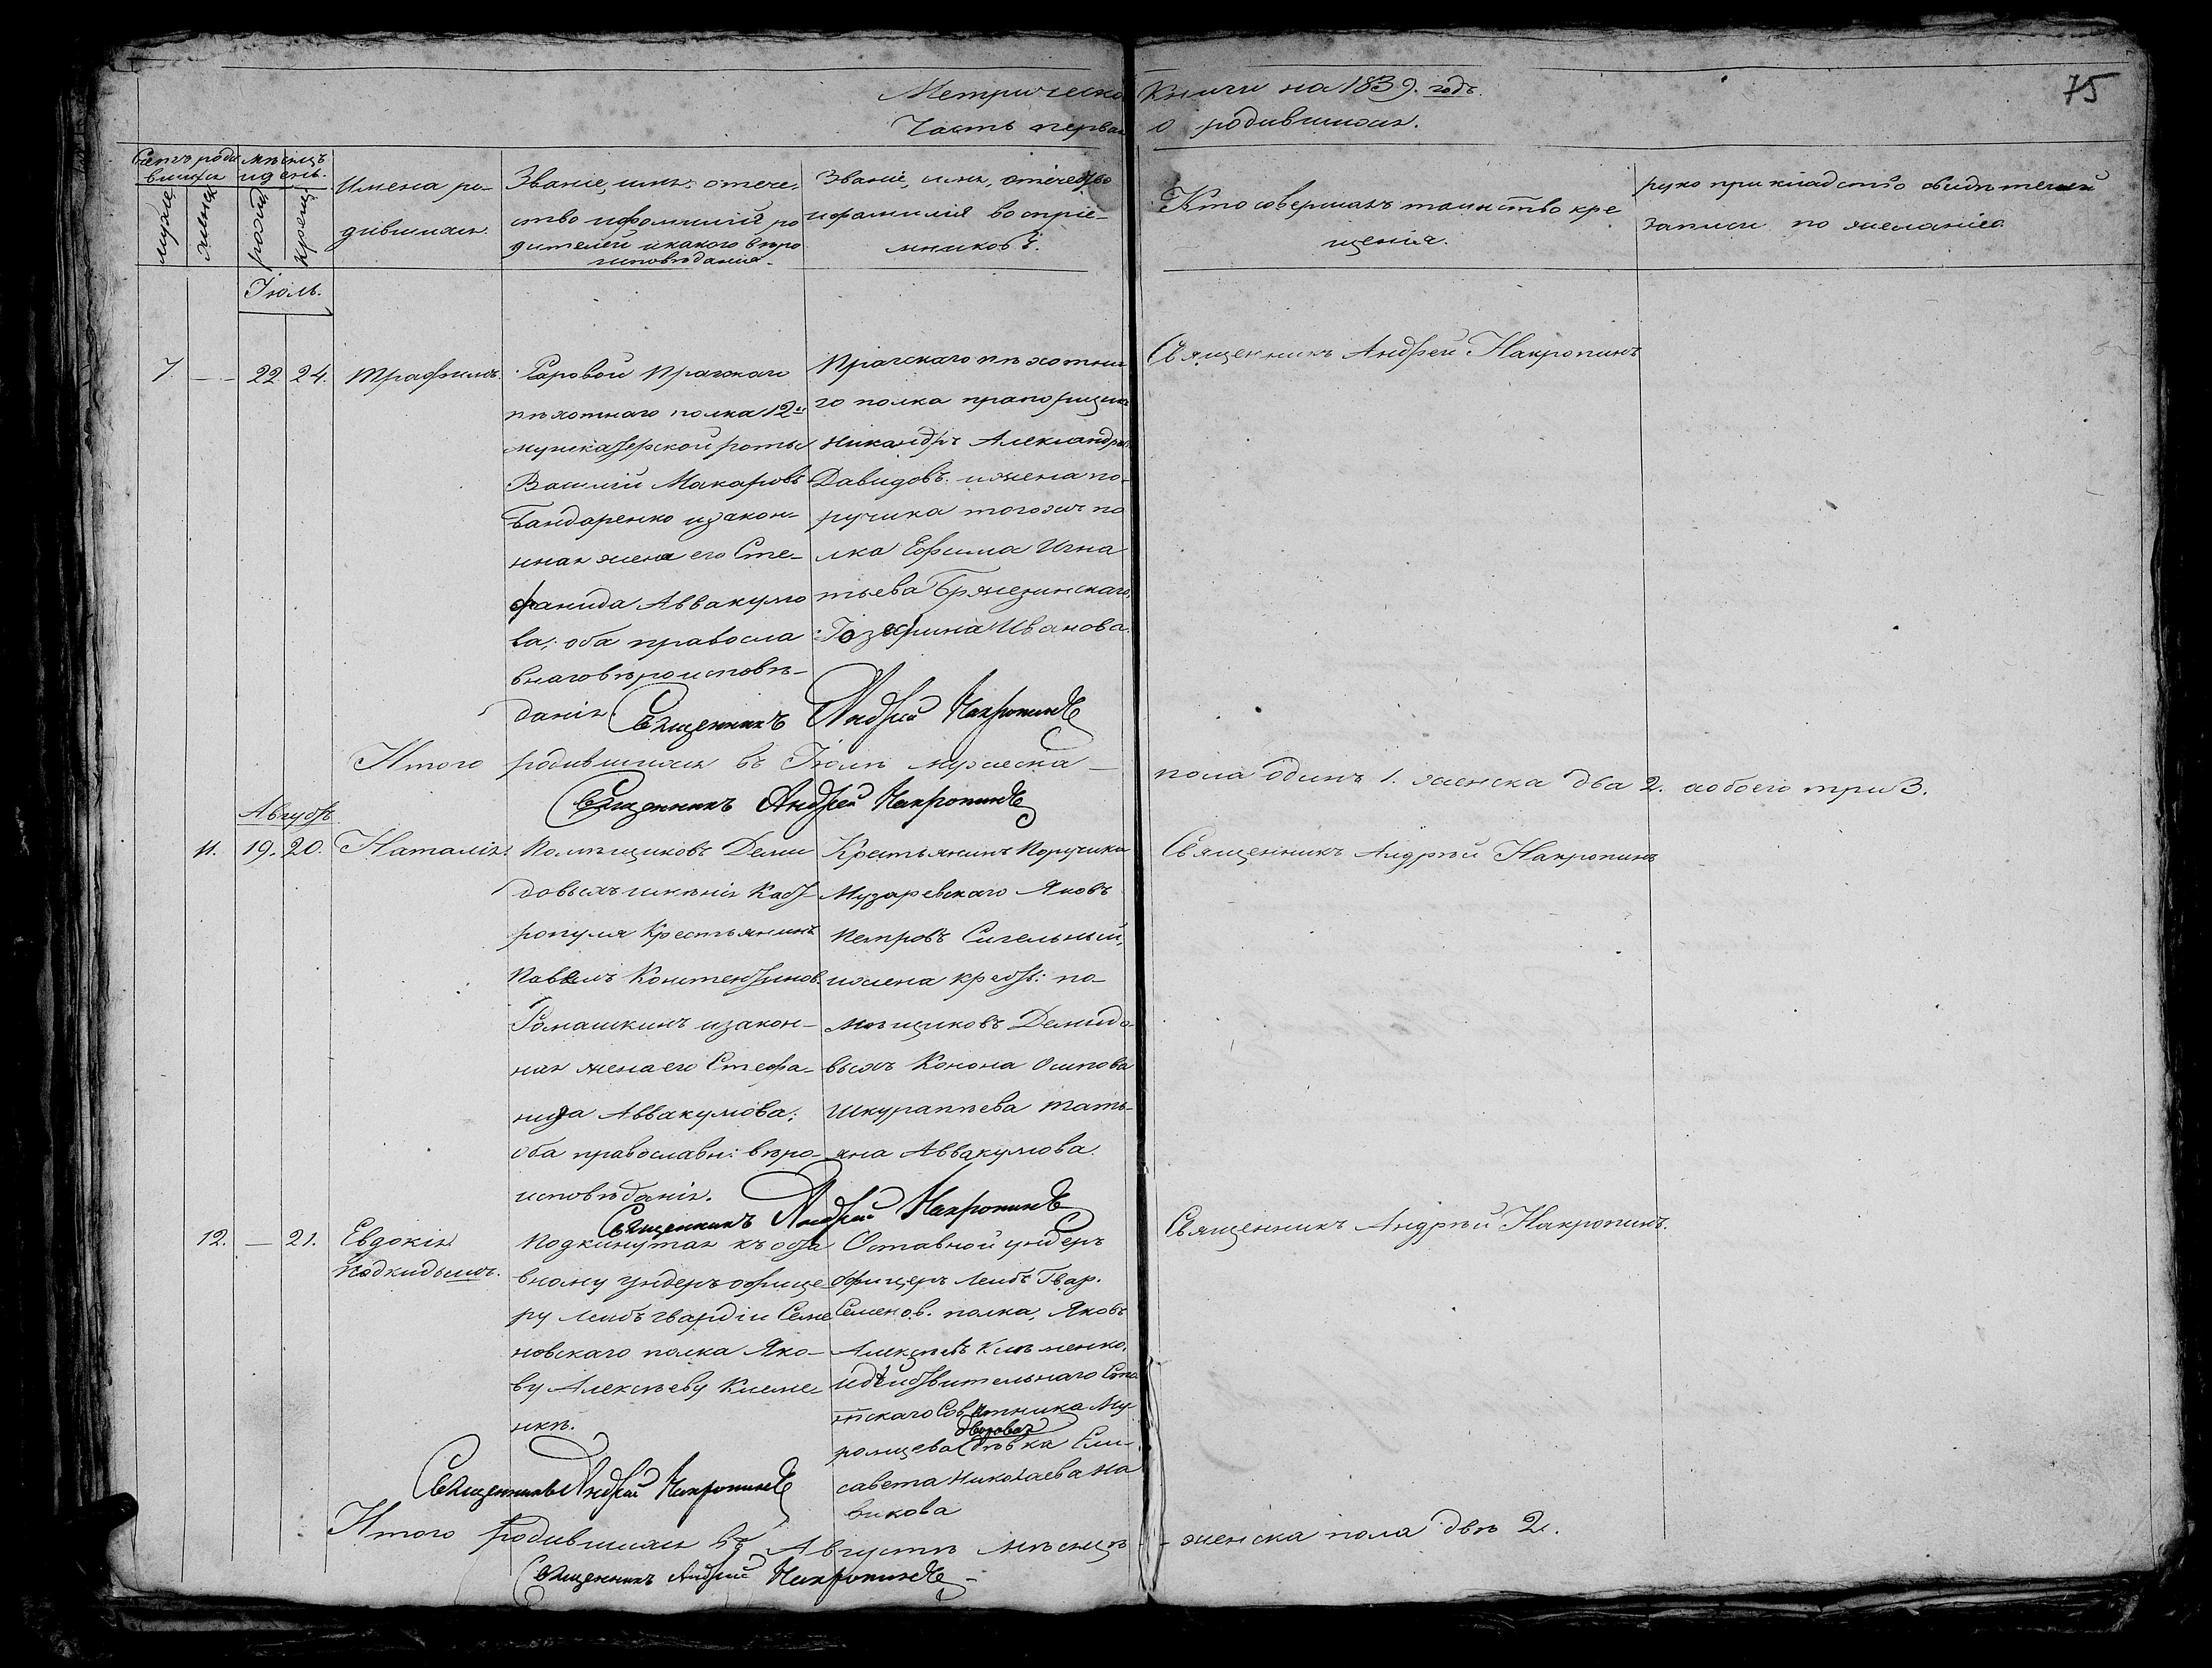 75
Метрической Книги на 1839. годъ.
Часть первая о родившихся.
Счетъ роди вшихся
мѣсяцъ и день.
мужес
женск
рожд
крещ:
Имена ро-
дившихся.
Званіе, имя, отече-
ство и фамилія ро
дителей и какого вѣро
исповѣданія.
Званіе, имя, отечество
и фамилія воспріе-
мниковъ.
Кто совершалъ таинство кре
щенія.
рукоприкладство свидѣтелей
записи по желанію.
Іюль.
7 — 22 24. Трофимъ.
Рядовой Пражскаго
пѣхотнаго полка 12й
мушкатерской роты
Василій Макаровъ
Бандаренко и закон-
ная жена его Сте-
фанида Аввакумо
ва; оба правосла
внаго вѣроисповѣ-
данія
Пражскаго пѣхотна
го полка прапорщикъ
Никандръ Александровъ
Давидовъ. и жена по-
ручика тогожъ по
лка Ефима Игна
тьева Бржезинскаго,
Иванова.
Священникъ Андрей Накропинъ
Священникъ Андрей Накропинъ
Итого родившихся въ Іюлѣ мужеска — пола одинъ 1. женска два 2. а обоего три 3.
Священникъ Андрей Накропинъ
Августъ.
11. 19. 20. Наталія.
Помѣщиковъ Деми
довыхъ имѣнія
крестьянинъ
Павелъ Констентинов.
Ромашкинъ и закон-
ная жена его Стефа-
нида Аввакумова;
оба православн: вѣро-
исповѣданія.
Крестьянинъ Поручика
Музаревскаго Яковъ
Петровъ Сигельный,
и жена крест: по-
мѣщиковъ Демидо-
выхъ Конона Осипова
Шкурапѣева Тать-
яна Аввакумова.
Священникъ Андрѣй Накропинъ
Священникъ Андрей Накропинъ
12. — 21. Евдокія
подкидышъ.
Подкинутая къ отста
вному ундеръ офице
ру лейбъ гвардіи Семе
новскаго полка Яко-
ву Алексѣеву Клеме
нкѣ.
Оставной ундеръ
офицеръ Лейбъ Гвар.
Семенов. полка, Яковъ
Алексѣевъ Клеменко,
и дѣйствительнаго Ста
тскаго Совѣтника Му
ромцева дворовая дѣвка Ели-
савета Николаева На
викова
Священникъ Андрѣй Накропинъ.
Священникъ Андрей Накропинъ
Итого родившихся въ Августѣ мѣсяцѣ - женска пола двѣ 2.
Священникъ Андрей Накропинъ